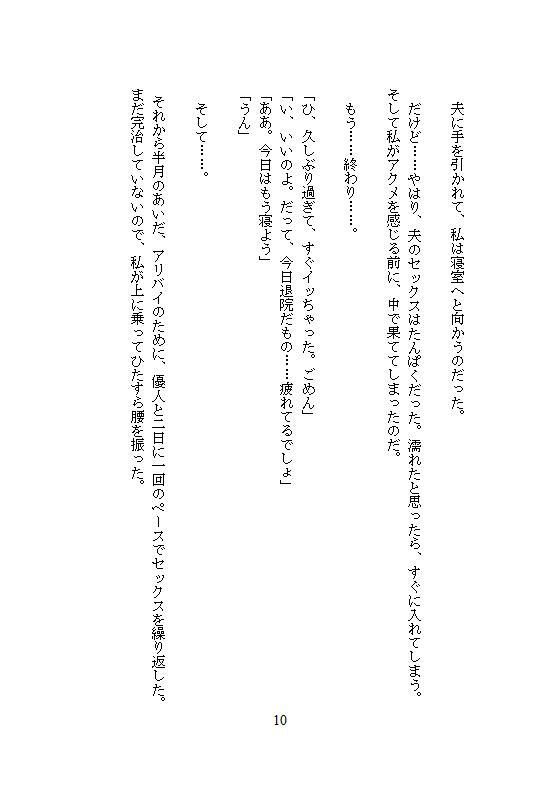 夫に手を引かれて、私は寝室へと向かうのだった。
だけど……やはり、夫のセックスはたんぱくだった。濡れたと思ったら、すぐに入れてしまう。
そして私がアクメを感じる前に、中で果ててしまったのだ。
もう……終わり……。
「ひ、久しぶり過ぎて、すぐイッちゃった。ごめん」
「い、いいのよ。だって、今日退院だもの……疲れてるでしょ」
「ああ。今日はもう寝よう」
「うん」
そして……。
それから半月のあいだ、アリバイのために、優人と二日に一回のペースでセックスを繰り返した。
まだ完治していないので、私が上に乗ってひたすら腰を振った。
10